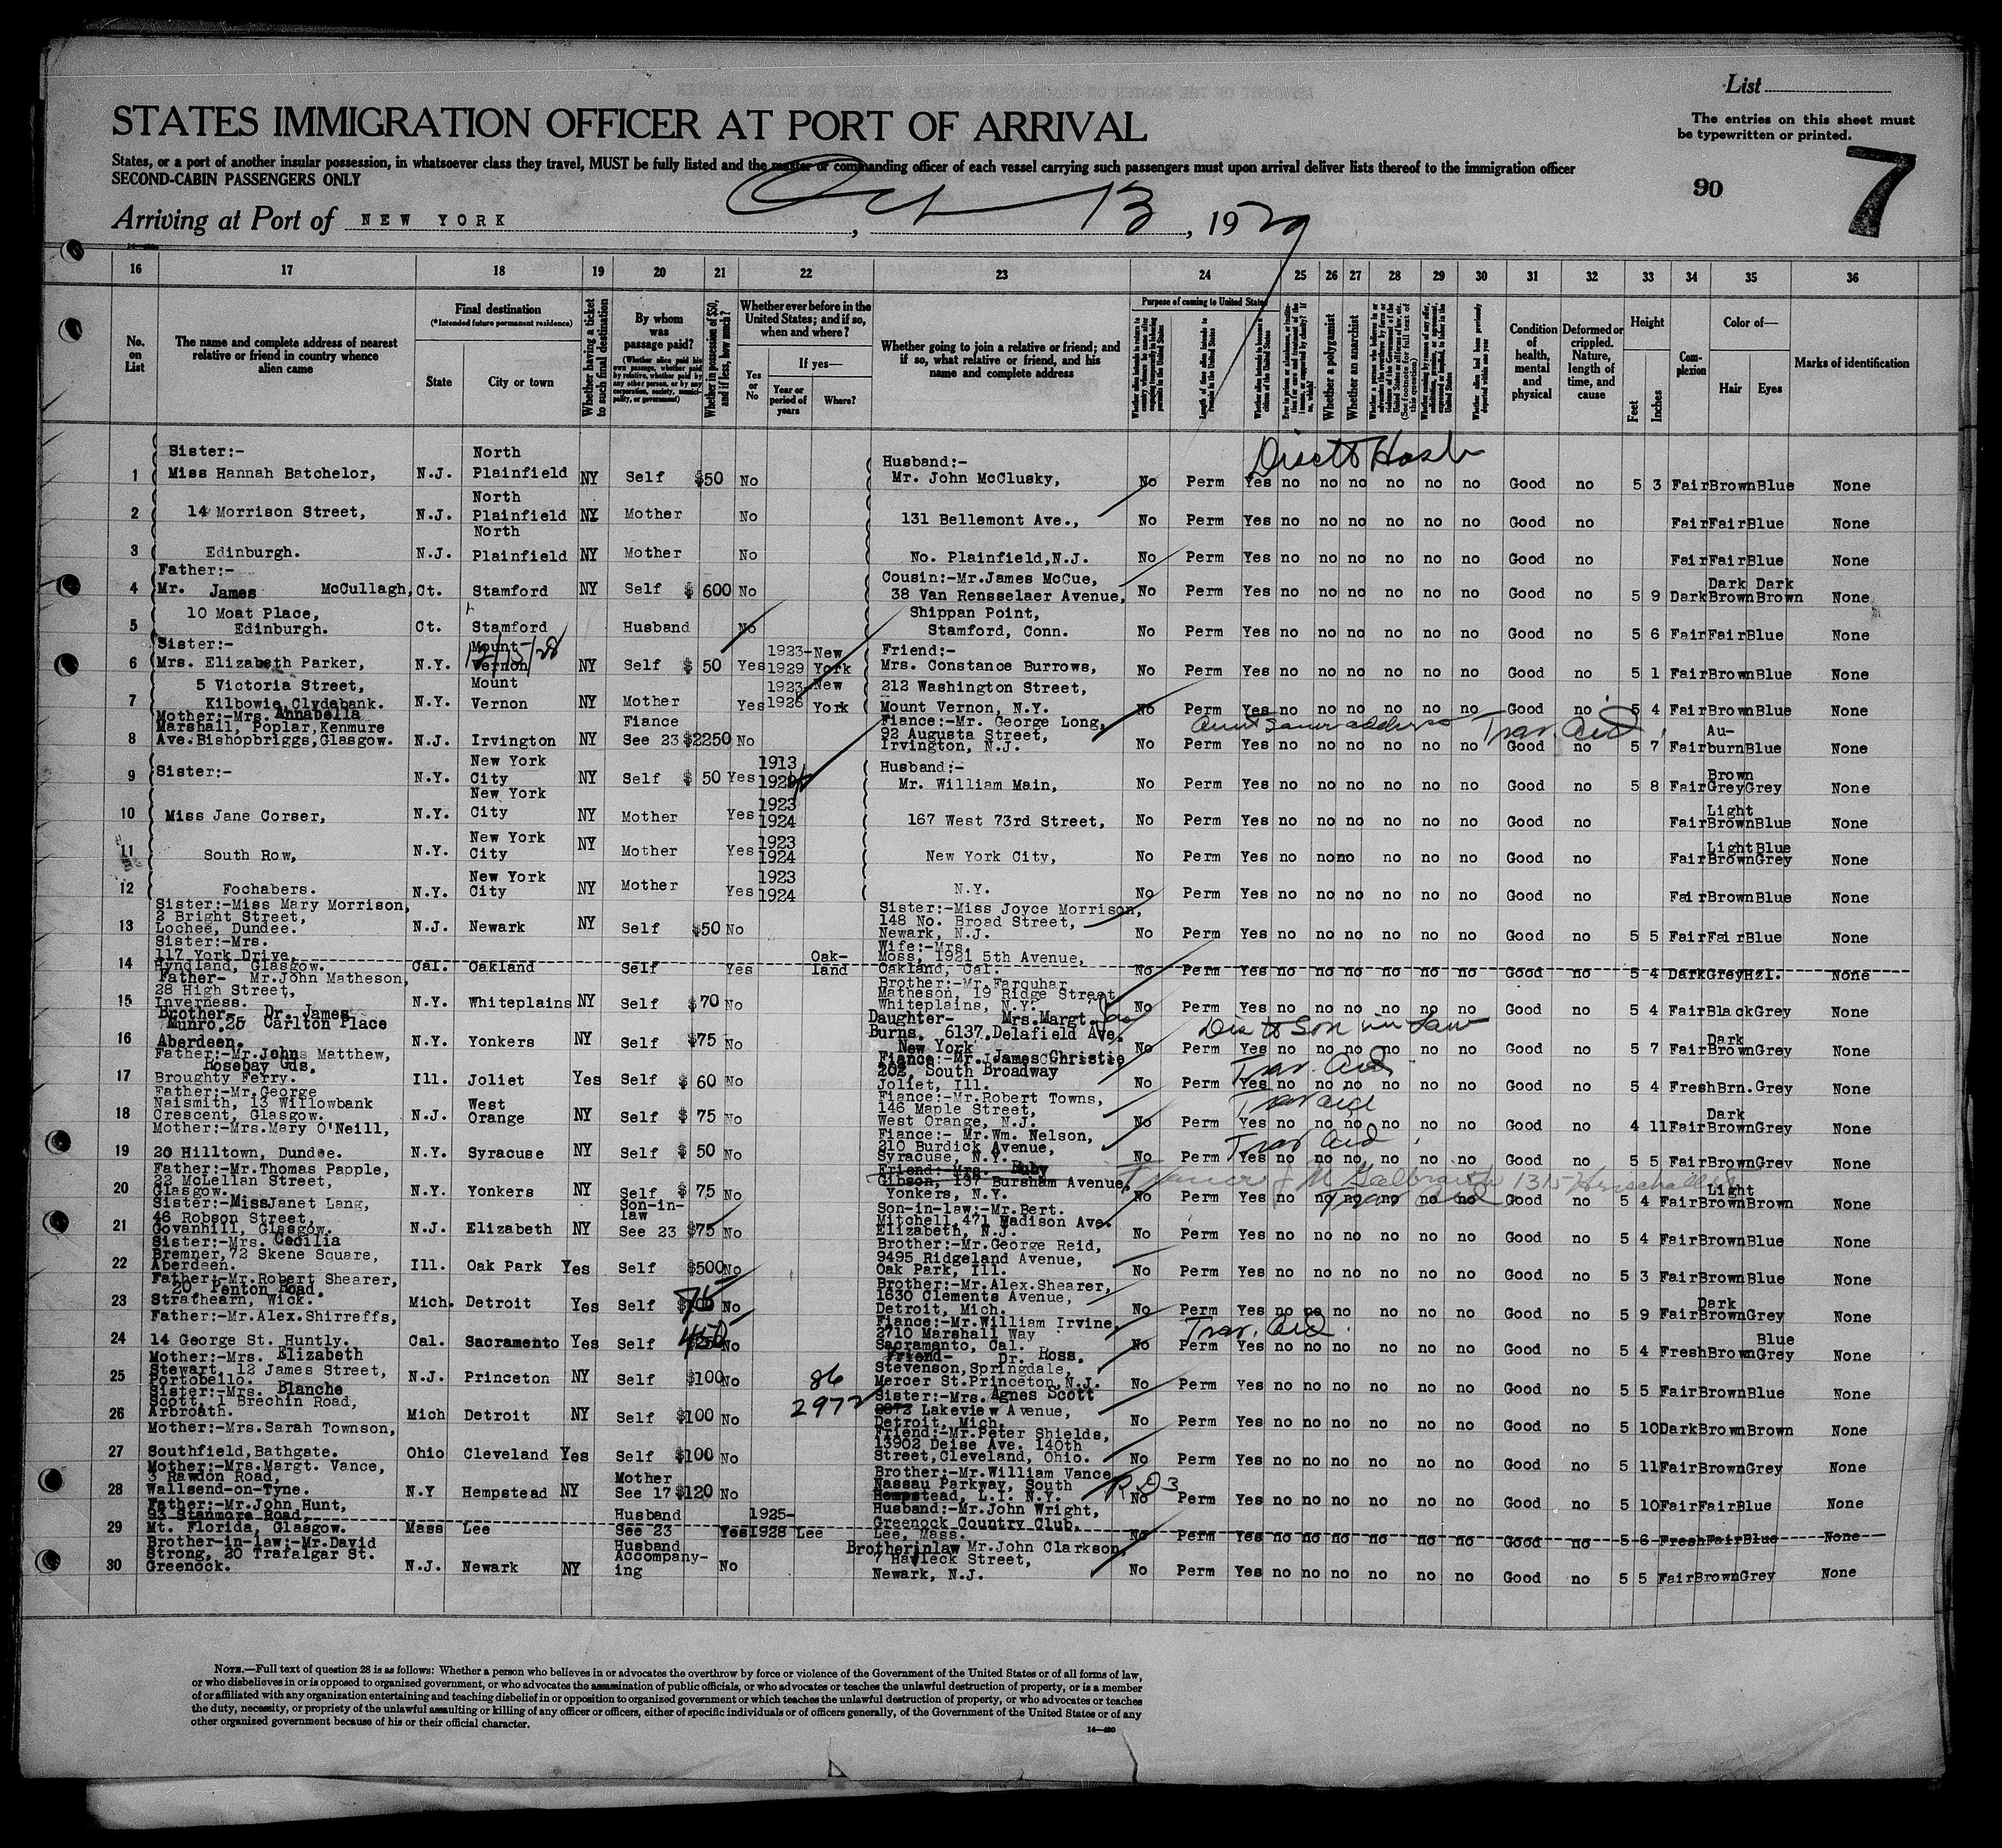 List
STATES IMMIGRATION OFFICER AT PORT OF ARRIVAL
The entries on this sheet must
be typewritten or printed.
States, or a port of another insular possession, in whatsoever class they travel, MUST be fully listed and the master or commanding officer of each vessel carrying such passengers must upon arrival deliver lists thereof to the immigration officer
SECOND-CABIN PASSENGERS ONLY
90
7
Arriving at Port of NEW YORK, Oct 13, 1929
16 17 18 19 20 21 22 23 24 25 26 27 28 29 30 31 32 33 34 35 36
No. on List
The name and complete address of nearest relative or friend in country whence alien came
Final destination
(*Intended future permanent residence)
State
City or town
Whether having a ticket to such final destination
By whom was passage paid?
(Whether alien paid his own passage, whether paid by relative, whether paid by any other person, or by any corporation, society, municipality, or government)
Whether in possession of $50, and if less, how much?
Whether ever before in the United States; and if so, when and where?
Yes or No
If yes—
Year or period of years
Where?
Whether going to join a relative or friend; and if so, what relative or friend, and his name and complete address
Purpose of coming to United States
Whether a polygamist
Whether an anarchist
Condition of health, mental and physical
Deformed or crippled. Nature, length of time, and cause
Height
Feet
Inches
Complexion
Color of—
Hair
Eyes
Marks of identification
Disc to Husb
1 Sister:- Miss Hannah Batchelor, N.J. North Plainfield NY Self $50 No Husband:- Mr. John McClusky, No Perm Yes no no no no no no Good no 5 3 Fair Brown Blue None
2 14 Morrison Street, N.J. North Plainfield NY Mother No 131 Bellemont Ave., No Perm Yes no no no no no no Good no Fair Fair Blue None
3 Edinburgh. N.J. North Plainfield NY Mother No No. Plainfield,N.J. No Perm Yes no no no no no no Good no Fair Fair Blue None
4 Father:- Mr. James McCullagh, Ct. Stamford NY Self $ 600 No Cousin:-Mr.James McCue, 38 Van Rensselaer Avenue, No Perm Yes no no no no no no Good no 5 9 Dark Dark Brown Dark Brown None
5 10 Moat Place, Edinburgh. Ct. Stamford Husband No Shippan Point, Stamford, Conn. No Perm Yes no no no no no no Good no 5 6 Fair Fair Blue None
12/15/28
6 Sister:- Mrs. Elizabeth Parker, N.Y. Mount Vernon NY Self $ 50 Yes 1923-1929 New York Friend:- Mrs. Constance Burrows, No Perm Yes no no no no no no Good no 5 1 Fair Brown Blue None
7 5 Victoria Street, Kilbowie,Clydebank. N.Y. Mount Vernon NY Mother Yes 1923- New York 212 Washington Street, Mount Vernon, N.Y. No Perm Yes no no no no no no Good no 5 4 Fair Brown Blue None
Aunt same address Trav. Aid
8 Mother:-Mrs. Annabella Marshall, Poplar,Kenmure Ave.Bishopbriggs,Glasgow. N.J. Irvington NY Fiance See 23 $2250 No Fiance:-Mr. George Long, 92 Augusta Street, Irvington, N.J. No Perm Yes no no no no no no Good no 5 7 Fair Auburn Blue None
9 Sister:- N.Y. New York City NY Self $ 50 Yes 1913 Husband:- Mr. William Main, No Perm Yes no no no no no no Good no 5 8 Fair Brown Grey Grey None
10 Miss Jane Corser, N.Y. New York City NY Mother Yes 1923 1924 167 West 73rd Street, No Perm Yes no no no no no no Good no Fair Light Brown Blue None
11 South Row, N.Y. New York City NY Mother Yes 1923 1924 New York City, No Perm Yes no no no no no no Good no Fair Light Brown Blue Grey None
12 Fochabers. N.Y. New York City NY Mother Yes 1923 1924 N.Y. No Perm Yes no no no no no no Good no Fair Brown Blue None
13 Sister:-Miss Mary Morrison, 2 Bright Street, Lochee, Dundee. N.J. Newark NY Self $50 No Sister:-Miss Joyce Morrison, 148 No. Broad Street, Newark, N.J. No Perm Yes no no no no no no Good no 5 5 Fair Fair Blue None
14 Sister:-Mrs. 117 York Drive, Hyndland, Glasgow. Cal. Oakland Self Yes Oakland Wife:-Mrs. Moss, 1921 5th Avenue, Oakland, Cal. No Perm Yes no no no no no no Good no 5 4 Dark Grey Hzl. None
15 Father- Mr.John Matheson, 28 High Street, Inverness. N.Y. Whiteplains NY Self $70 No Brother:-Mr.Farquhar Matheson, 19 Ridge Street Whiteplains, N.Y. No Perm Yes no no no no no no Good no 5 4 Fair Black Grey None
Dis to Son in Law
16 Brother- Dr. James Munro.25 Carlton Place Aberdeen. N.Y. Yonkers NY Self $75 No Daughter- Mrs.Margt. Burns, 6137.Delafield Ave. New York No Perm Yes no no no no no no Good no 5 7 Fair Dark Brown Grey None
Trav. Aid
17 Father:-Mr.John Matthew, Rosebay Gds. Broughty Ferry. Ill. Joliet Yes Self $ 60 No Fiance:-Mr. James Christie 202, South Broadway Joliet, Ill. No Perm Yes no no no no no no Good no 5 4 Fresh Brn. Grey None
Trav aid
18 Father:-Mr.George Naismith, 13 Willowbank Crescent, Glasgow. N.J. West Orange NY Self $ 75 No Fiance:-Mr.Robert Towns, 146 Maple Street, West Orange, N.J. No Perm Yes no no no no no no Good no 4 11 Fair Dark Brown Grey None
Trav Aid
19 Mother:-Mrs.Mary O'Neill, 20 Hilltown, Dundee. N.Y. Syracuse NY Self $ 50 No Fiance:- Mr.Wm. Nelson, 210 Burdick Avenue, Syracuse, N.Y. No Perm Yes no no no no no no Good no 5 5 Fair Brown Grey None
J M Galbraith 1315
Trav Aid
20 Father:-Mr.Thomas Papple, 22 McLellan Street, Glasgow. N.Y. Yonkers NY Self $ 75 No Friend:-Mrs. Ruby Gibson, 137 Bursham Avenue, Yonkers, N.Y. No Perm Yes no no no no no no Good no 5 4 Fair Light Brown Brown None
21 Sister:-MissJanet Lang, 46 Robson Street, Govanhill, Glasgow. N.J. Elizabeth NY Son-in-law See 23 $75 No Son-in-law:-Mr.Bert. Mitchell,471 Madison Ave. Elizabeth, N.J. No Perm Yes no no no no no no Good no 5 4 Fair Brown Blue None
22 Sister:-Mrs. Cecilia Bremner,72 Skene Square, Aberdeen. Ill. Oak Park Yes Self $500 No Brother:-Mr.George Reid, 9495 Ridgeland Avenue, Oak Park, Ill. No Perm Yes no no no no no no Good no 5 3 Fair Brown Blue None
23 Father:-Mr.Robert Shearer, 20, Penton Road. Strathearn, Wick. Mich. Detroit Yes Self 75 No Brother:-Mr.Alex.Shearer, 1630 Clements Avenue, Detroit, Mich. No Perm Yes no no no no no no Good no 5 9 Fair Dark Brown Grey None
Trav. Aid.
24 Father:-Mr.Alex.Shirreffs, 14 George St. Huntly. Cal. Sacramento Yes Self No Fiance:-Mr.William Irvine, 2710 Marshall Way Sacramento, Cal. No Perm Yes no no no no no no Good no 5 4 Fresh Brown Blue Grey None
25 Mother:-Mrs. Elizabeth Stewart, 12 James Street, Portobello. N.J. Princeton NY Self $100 No Friend- Dr. Ross. Stevenson,Springdale, Mercer St.Princeton,N.J. No Perm Yes no no no no no no Good no 5 5 Fair Brown Blue None
86
2972
26 Sister:-Mrs. Blanche Scott, 1 Brechin Road, Arbroath. Mich Detroit NY Self $100 No Sister:-Mrs. Agnes Scott Lakeview Avenue, Detroit, Mich. No Perm Yes no no no no no no Good no 5 10 Dark Brown Brown None
27 Mother:-Mrs.Sarah Townson, Southfield,Bathgate. Ohio Cleveland Yes Self $100 No Friend:-Mr.Peter Shields, 13902 Deise Ave. 140th Street,Cleveland, Ohio. No Perm Yes no no no no no no Good no 5 11 Fair Brown Grey None
28 Mother:-Mrs.Margt. Vance, 3 Rawdon Road, Wallsend-on-Tyne. N.Y Hempstead NY Mother See 17 $120 No Brother:-Mr.William Vance Nassau Parkway, South Hempstead, L.I. N.Y. No Perm Yes no no no no no no Good no 5 10 Fair Fair Blue None
29 Father:-Mr.John Hunt, 93 Stanmore Road, Mt. Florida, Glasgow. Mass Lee Husband See 23 Yes 1925-1928 Lee Husband:-Mr.John Wright, Greenock Country Club, Lee, Mass. No Perm Yes no no no no no no Good no 5 6 Fresh Fair Blue None
30 Brother-in-law:-Mr.David Strong, 20 Trafalgar St. Greenock. N.J. Newark NY Husband Accompanying No Brotherinlaw Mr.John Clarkson, 7 Havleck Street, Newark, N.J. No Perm Yes no no no no no no Good no 5 5 Fair Brown Grey None
NOTE.—Full text of question 28 is as follows: Whether a person who believes in or advocates the overthrow by force or violence of the Government of the United States or of all forms of law,
or who disbelieves in or is opposed to organized government, or who advocates the assassination of public officials, or who advocates or teaches the unlawful destruction of property, or is a member
of or affiliated with any organization entertaining and teaching disbelief in or opposition to organized government or which teaches the unlawful destruction of property, or who advocates or teaches
the duty, necessity, or propriety of the unlawful assaulting or killing of any officer or officers, either of specific individuals or of officers generally, of the Government of the United States or of any
other organized government because of his or their official character.
14—480